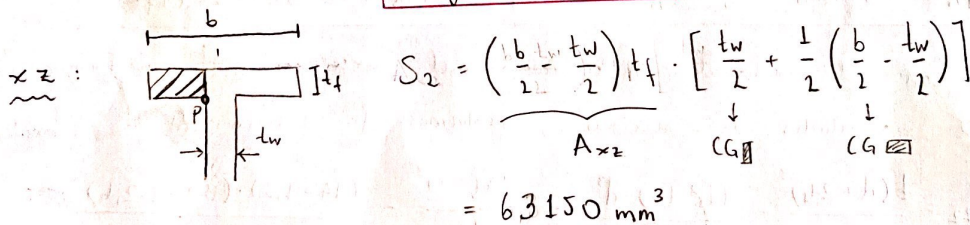 b
xz :
tf
P
tw
S2 = (b/2 - tw/2) tf · [tw/2 + 1/2 (b/2 - tw/2)]
Axz
CG
CG
= 63150 mm³